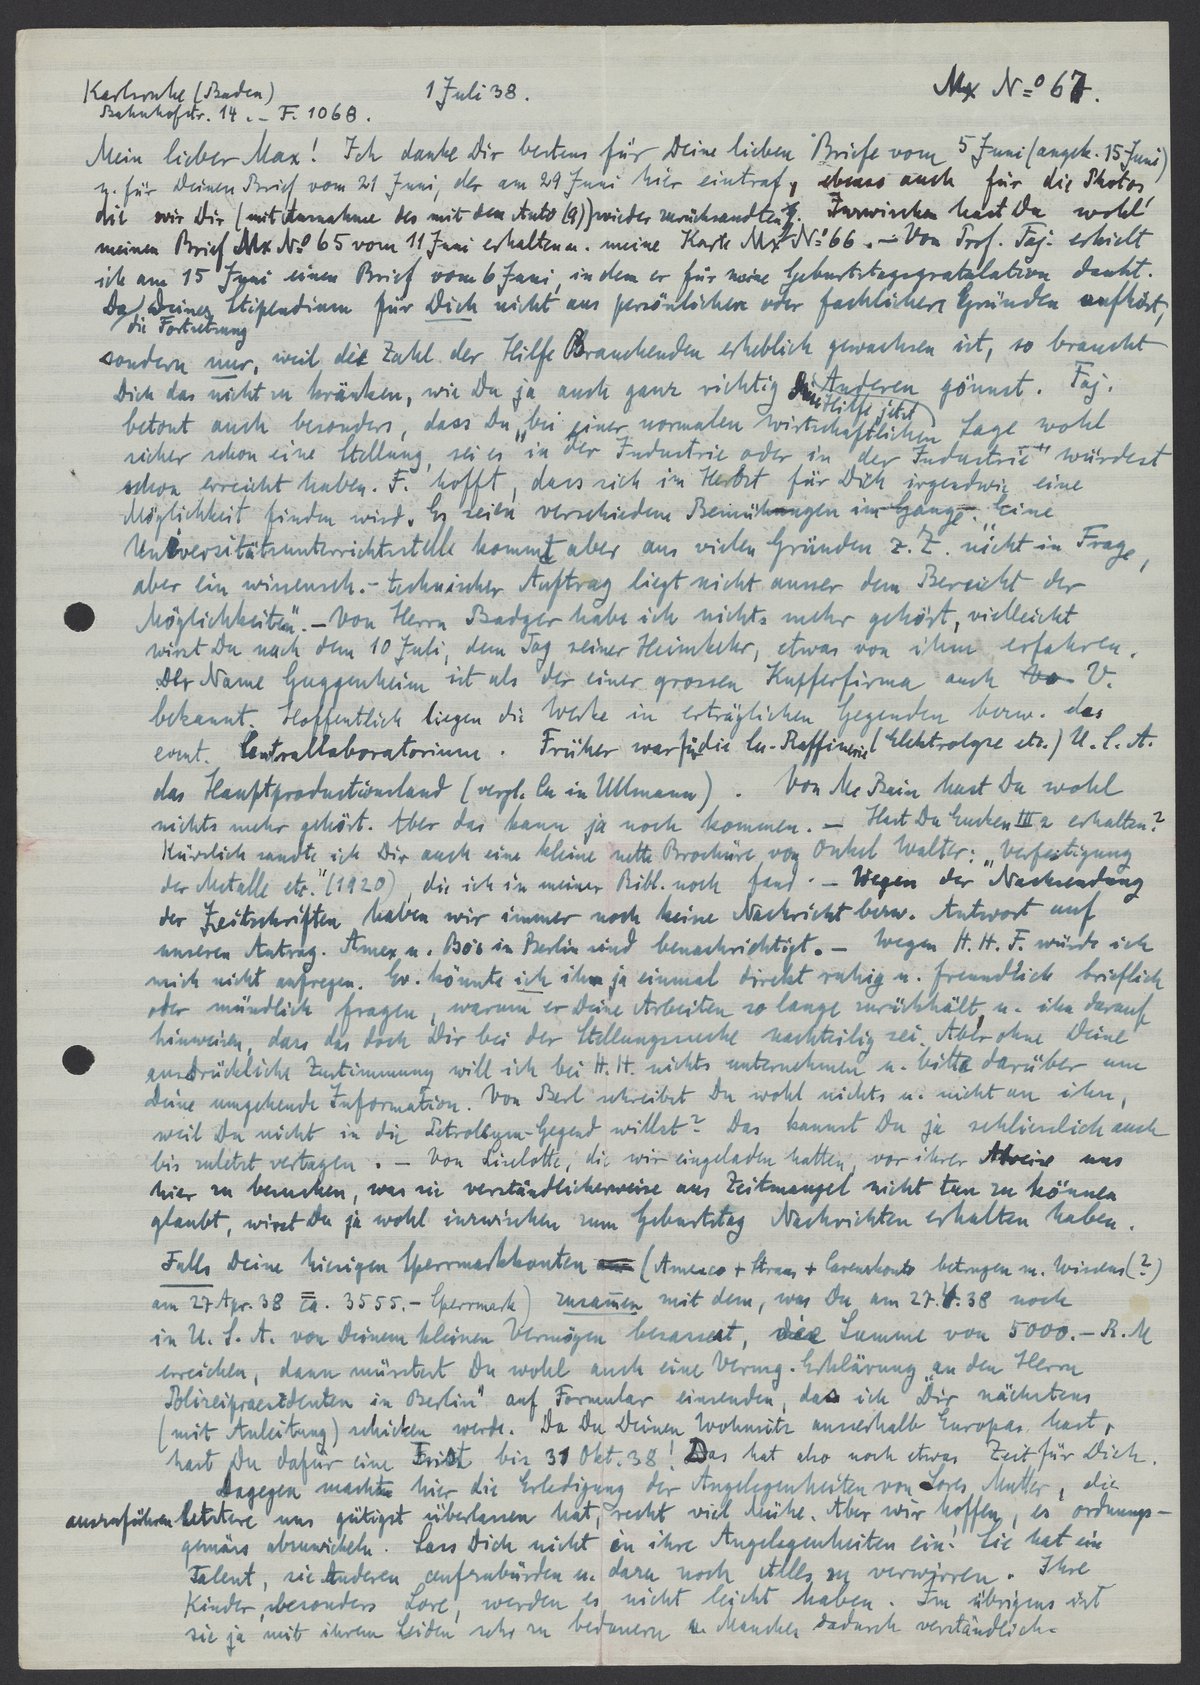 Karlsruhe (Baden) 1 Juli 38. Mx No 67.
Bahnhofstr. 14. – F. 1068.
Mein lieber Max! Ich danke Dir bestens für Deine lieben Briefe vom 5 Juni (angek. 15 Juni)
u. für Deinen Brief vom 21 Juni, der am 29 Juni hier eintraf, ebenso auch für die Photos
die wir Dir (mit Ausnahme des mit dem Auto (9)) wieder zurücksandten. Inzwischen hast Du wohl
meinen Brief Mx No 65 vom 11 Juni erhalten u. meine Karte Mx No 66. – Von Prof. Faj. erhielt
ich am 15 Juni einen Brief vom 6 Juni, in dem er für meine Geburtstagsgratulation dankt.
Da die Fortsetzung Deines Stipendiums für Dich nicht aus persönlichen oder fachlichen Gründen aufhört,
sondern nur, weil die Zahl der Hilfe Brauchenden erheblich gewachsen ist, so braucht
Dich das nicht zu kränken, wie Du ja auch ganz richtig die Hilfe jetzt Anderen gönnst. Faj.
betont auch besonders, dass Du „bei einer normalen wirtschaftlichen Lage wohl
sicher schon eine Stellung, sei es in der Industrie oder in der Industrie" würdest
schon erreicht haben. F. hofft, dass sich im Herbst für Dich irgendwie eine
Möglichkeit finden wird. Es seien verschiedene Bemühungen im Gange. „Eine
Universitätsunterrichtsstelle kommt aber aus vielen Gründen z. Z. nicht in Frage,
aber ein wissensch.-technischer Auftrag liegt nicht ausser dem Bereicht der
Möglichkeiten". – Von Herrn Badger habe ich nichts mehr gehört, vielleicht
wirst Du nach dem 10 Juli, dem Tag seiner Heimkehr, etwas von ihm erfahren.
Der Name Guggenheim ist als der einer grossen Kupferfirma auch V.
bekannt. Hoffentlich liegen die Werke in erträglichen Gegenden bezw. das
event. Centrallaboratorium. Früher war für die Cu-Raffinerie (Elektrolyse etc.) U.S.A.
das Hauptproductionsland (vergl. Cu in Ullmann). Von Mc Bain hast Du wohl
nichts mehr gehört. Aber das kann ja noch kommen. – Hast Du Eucken III 2 erhalten?
Kürzlich sandte ich Dir auch eine kleine nette Brochüre von Onkel Walter: „Verfestigung
der Metalle etc." (1920), die ich in meiner Bibl. noch fand. – Wegen der Nachsendung
der Zeitschriften haben wir immer noch keine Nachricht bezw. Antwort auf
unseren Antrag. Amex u. Bö's in Berlin sind benachrichtigt. – Wegen H. H. F. würde ich
mich nicht aufregen. Ev. könnte ich ihn ja einmal direkt ruhig u. freundlich brieflich
oder mündlich fragen, warum er Deine Arbeiten so lange zurückhält, u. ihn darauf
hinweisen, dass das doch Dir bei der Stellungssuche nachteilig sei. Aber ohne Deine
ausdrückliche Zustimmung will ich bei H. H. nichts unternehmen u. bitte darüber um
Deine umgehende Information. Von Berl schreibst Du wohl nichts u. nicht an ihn,
weil Du nicht in die Petroleum-Gegend willst? Das kannst Du ja schliesslich auch
bis zuletzt vertagen. – Von Liselotte, die wir eingeladen hatten, vor ihrer Abreise uns
hier zu besuchen, was sie verständlicherweise aus Zeitmangel nicht tun zu können
glaubt, wirst Du ja wohl inzwischen zum Geburtstag Nachrichten erhalten haben.
Falls Deine hiesigen Sperrmarkkonten (Amexco + Straus + betrugen m. Wissens (?)
am 27 Apr. 38 ca. 3555.– Sperrmark) zusamen mit dem, was Du am 27.4.38 noch
in U.S.A. von Deinem kleinen Vermögen besassest, die Summe von 5000.– R.M
erreichen, dann müsstest Du wohl auch eine Vermg.-Erklärung „an den Herrn
Polizeipraesidenten in Berlin" auf Formular einsenden, das ich Dir nächstens
(mit Anleitung) schicken werde. Da Du Deinen Wohnsitz ausserhalb Europas hast,
hast Du dafür eine Frist bis 31 Okt. 38! Das hat also noch etwas Zeit für Dich.
Dagegen machte hier die Erledigung der Angelegenheiten von Lores Mutter, die
letztere uns gütigst auszuführen überlassen hat, recht viel Mühe. Aber wir hoffen, es ordnungs-
gemäss abzuwickeln. Lass Dich nicht in ihre Angelegenheiten ein! Sie hat ein
Talent, sie Anderen aufzubürden u. dazu noch Alles zu verwirren. Ihre
Kinder, besonders Lore, werden es nicht leicht haben. Im übrigens ist
sie ja mit ihrem Leiden sehr zu bedauern u. Manches dadurch verständlich.